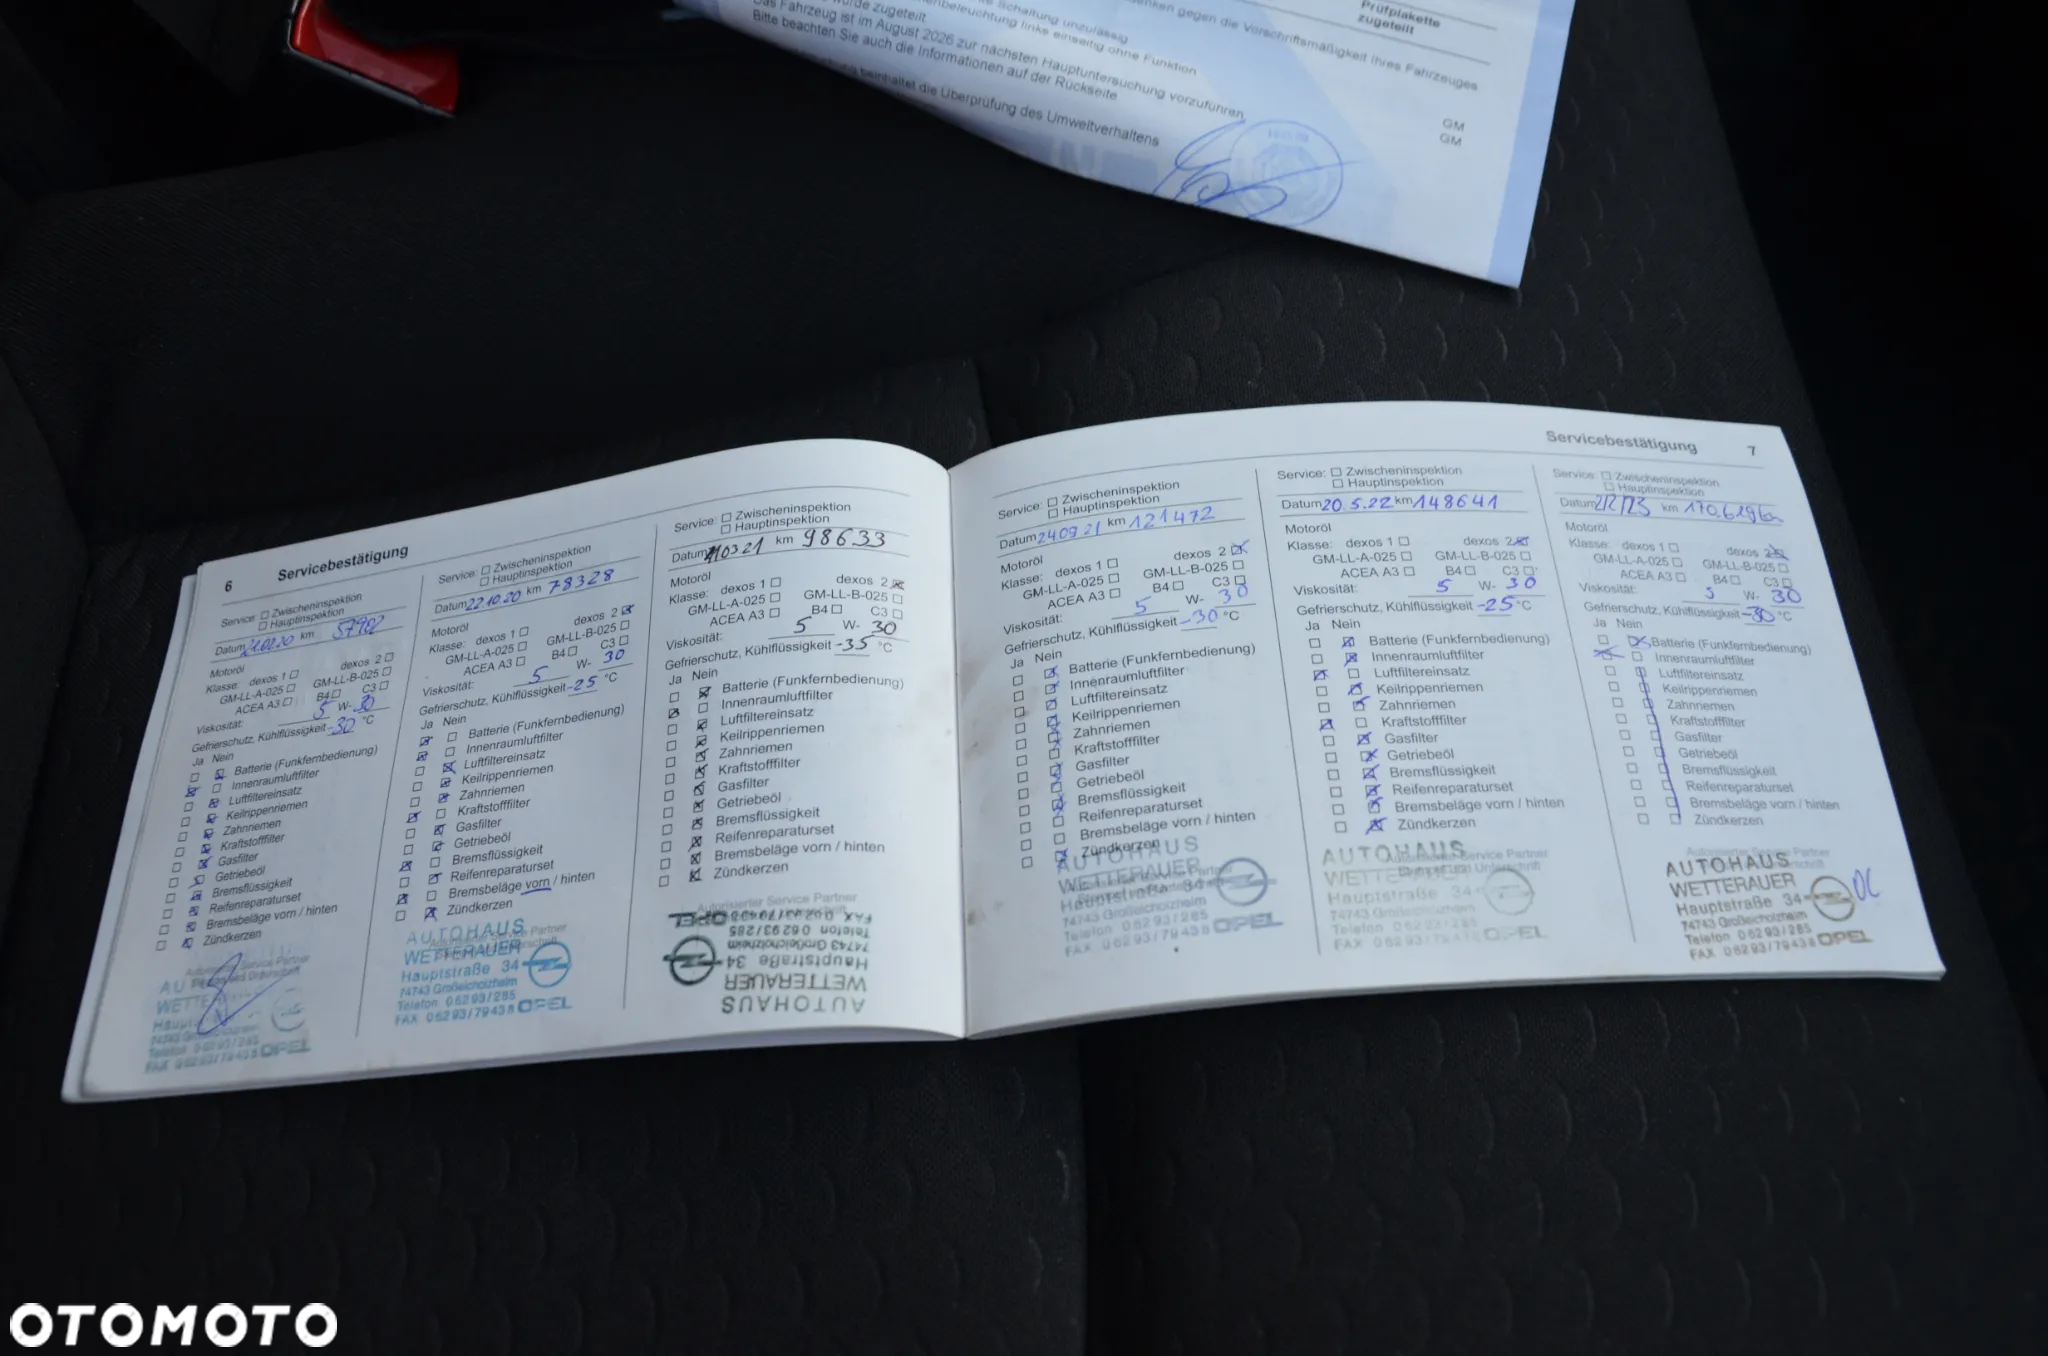 Prüfplakette
zugeteilt
wurde zugeteilt
Schaltung unzulässig
gegen die Vorschriftsmäßigkeit Ihres Fahrzeuges
Das Fahrzeug ist im August 2026 zur nächsten Hauptuntersuchung vorzuführen
Bitte beachten Sie auch die Informationen auf der Rückseite
beinhaltet die Überprüfung des Umweltverhaltens
GM
GM
6 Servicebestätigung
Service: Zwischeninspektion
Hauptinspektion
Datum km 57982
Motoröl
Klasse: dexos 1 dexos 2
GM-LL-A-025 GM-LL-B-025
ACEA A3 B4 C3
Viskosität: 5 W- 30
Gefrierschutz, Kühlflüssigkeit -30 °C
Ja Nein
Batterie (Funkfernbedienung)
Innenraumluftfilter
Luftfiltereinsatz
Keilrippenriemen
Zahnriemen
Kraftstofffilter
Gasfilter
Getriebeöl
Bremsflüssigkeit
Reifenreparaturset
Bremsbeläge vorn / hinten
Zündkerzen
Telefon 06293/285
FAX 06293/79438 OPEL
Service: Zwischeninspektion
Hauptinspektion
Datum 22.10.20 km 78328
Motoröl
Klasse: dexos 1 dexos 2
GM-LL-A-025 GM-LL-B-025
ACEA A3 B4 C3
Viskosität: 5 W- 30
Gefrierschutz, Kühlflüssigkeit -25 °C
Ja Nein
Batterie (Funkfernbedienung)
Innenraumluftfilter
Luftfiltereinsatz
Keilrippenriemen
Zahnriemen
Kraftstofffilter
Gasfilter
Getriebeöl
Bremsflüssigkeit
Reifenreparaturset
Bremsbeläge vorn / hinten
Zündkerzen
AUTOHAUS
WETTERAUER
Hauptstraße 34
74743 Großeicholzheim
Telefon 06293/285
FAX 06293/79438 OPEL
Service: Zwischeninspektion
Hauptinspektion
Datum km 98633
Motoröl
Klasse: dexos 1 dexos 2
GM-LL-A-025 GM-LL-B-025
ACEA A3 B4 C3
Viskosität: 5 W- 30
Gefrierschutz, Kühlflüssigkeit -35 °C
Ja Nein
Batterie (Funkfernbedienung)
Innenraumluftfilter
Luftfiltereinsatz
Keilrippenriemen
Zahnriemen
Kraftstofffilter
Gasfilter
Getriebeöl
Bremsflüssigkeit
Reifenreparaturset
Bremsbeläge vorn / hinten
Zündkerzen
Autorisierter Service Partner
AUTOHAUS
WETTERAUER
Hauptstraße 34
74743 Großeicholzheim
Telefon 06293/285
FAX 06293/79438 OPEL
Servicebestätigung 7
Service: Zwischeninspektion
Hauptinspektion
Datum 24.09.21 km 121472
Motoröl
Klasse: dexos 1 dexos 2
GM-LL-A-025 GM-LL-B-025
ACEA A3 B4 C3
Viskosität: 5 W- 30
Gefrierschutz, Kühlflüssigkeit -30 °C
Ja Nein
Batterie (Funkfernbedienung)
Innenraumluftfilter
Luftfiltereinsatz
Keilrippenriemen
Zahnriemen
Kraftstofffilter
Gasfilter
Getriebeöl
Bremsflüssigkeit
Reifenreparaturset
Bremsbeläge vorn / hinten
Zündkerzen
AUTOHAUS
WETTERAUER
Hauptstraße 34
74743 Großeicholzheim
Telefon 06293/285
FAX 06293/79438 OPEL
Service: Zwischeninspektion
Hauptinspektion
Datum 20.5.22 km 148641
Motoröl
Klasse: dexos 1 dexos 2
GM-LL-A-025 GM-LL-B-025
ACEA A3 B4 C3
Viskosität: 5 W- 30
Gefrierschutz, Kühlflüssigkeit -25 °C
Ja Nein
Batterie (Funkfernbedienung)
Innenraumluftfilter
Luftfiltereinsatz
Keilrippenriemen
Zahnriemen
Kraftstofffilter
Gasfilter
Getriebeöl
Bremsflüssigkeit
Reifenreparaturset
Bremsbeläge vorn / hinten
Zündkerzen
AUTOHAUS
Hauptstraße 34
74743 Großeicholzheim
Telefon 06293/285
OPEL
Service: Zwischeninspektion
Hauptinspektion
Datum km
Motoröl
Klasse: dexos 1 dexos 2
GM-LL-A-025 GM-LL-B-025
ACEA A3 B4 C3
Viskosität: 5 W- 30
Gefrierschutz, Kühlflüssigkeit -30 °C
Ja Nein
Batterie (Funkfernbedienung)
Innenraumluftfilter
Luftfiltereinsatz
Keilrippenriemen
Zahnriemen
Kraftstofffilter
Gasfilter
Getriebeöl
Bremsflüssigkeit
Reifenreparaturset
Bremsbeläge vorn / hinten
Zündkerzen
AUTOHAUS
WETTERAUER
Hauptstraße 34
74743 Großeicholzheim
Telefon 06293/285
FAX 06293/79438 OPEL
OTOMOTO